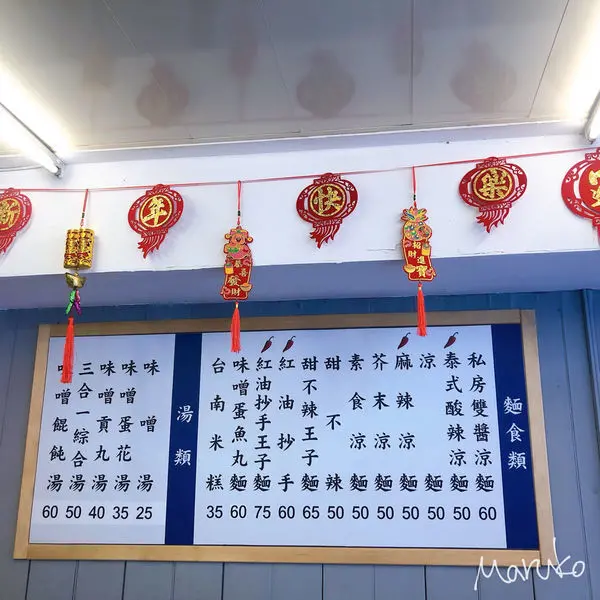 新
年
快
樂
喜
發財
招財
進寶
麵食類
私房雙醬涼麵 60
泰式酸辣涼麵 50
涼麵 50
麻辣涼麵 50
芥末涼麵 50
素食涼麵 50
甜不辣 50
甜不辣王子麵 65
紅油抄手 60
紅油抄手王子麵 75
味噌蛋魚丸麵 60
台南米糕 35
湯類
味噌湯 25
味噌蛋花湯 35
味噌貢丸湯 40
三合一綜合湯 50
味噌餛飩湯 60
Maruko